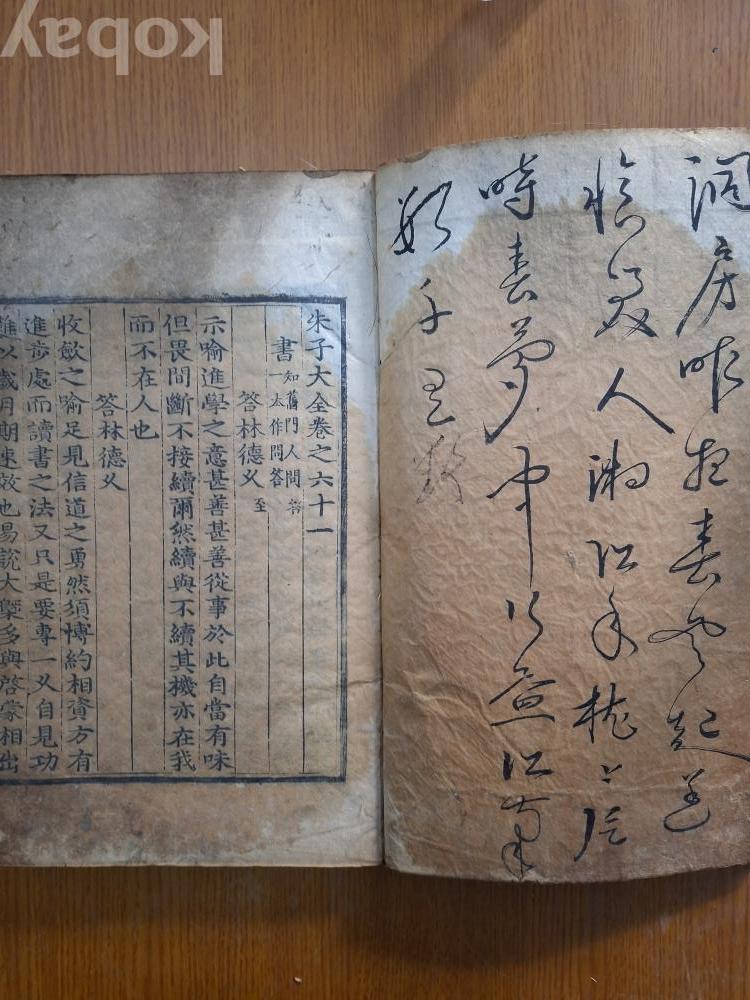 kobay
洞房昨夜春風起遙
憶美人湘江水枕上片
時春夢中行盡江南
數千里
朱子大全卷之六十一
書 知舊門人問答
一本作問答
答林德乂 至
示喻進學之意甚善甚善從事於此自當有味
但畏間斷不接續爾然續與不續其機亦在我
而不在人也
答林德乂
收斂之喻足見信道之勇然須博約相資方有
進步處而讀書之法又只是要專一乂自見功
難以歲月期速效也易說大槩多與啓蒙相出